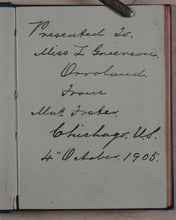 Presented To.
Miss L Grierson,
Orroland
From
Mat. Foster,
Chichago, U.S.
4th October, 1905.